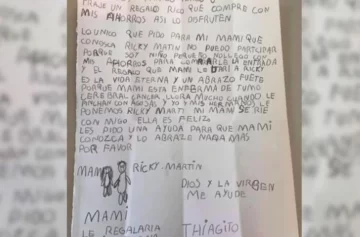 TRAJE UN REGALO RICO QUE COMPRE CON
MIS AHORROS ASI LO DISFRUTEN
LO UNICO QUE PIDO PARA MI MAMI QUE
CONOSCA RICKY MATIN NO PUEDO PARTICIPAR
PORQUE SOY NIÑO PORQUE NO LLEGO CON
MIS AHORROS PARA COMPRARLE LA ENTRADA
Y EL REGALO QUE MAMI LE DARE A RICKY
ES LA VIDA ETERNA Y UN ABRAZO FUETE
PORQUE MAMI ESTA ENFERMA DE TUMO
CEREBRAL CANCER LLORA MUCHO CUANDO LE
PINCHAN CON AGUJAS Y YO Y MIS HERMANOS LE
PONEMOS RICKY MARTI MI MAMI SE RIE
CON MIGO ELLA ES FELIZ
LES PIDO UNA AYUDA PARA QUE MAMI
CONOZCA Y LO ABRAZE NADA MAS
POR FAVOR
MAMI RICKY-MARTIN
DIOS Y LA VIRGEN
ME AYUDE
MAMI
LE REGALARIA THIAGITO